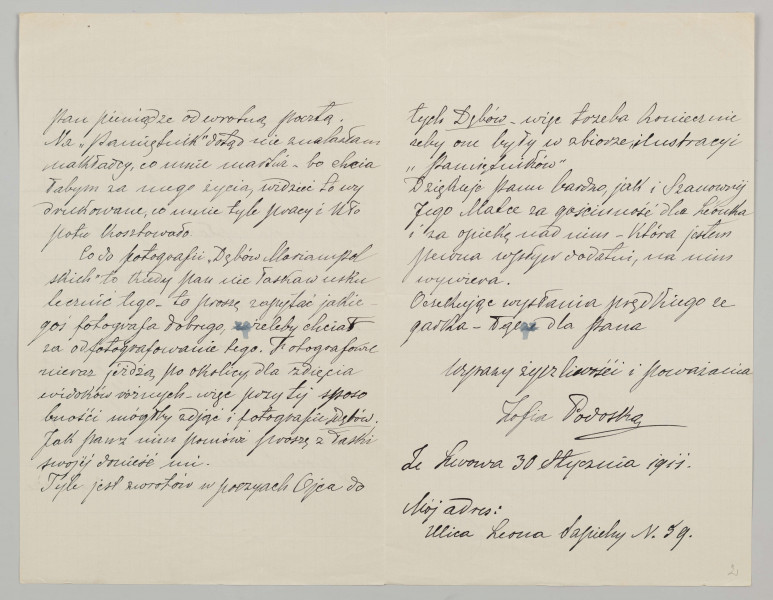 Pan pieniądze odwrotną pocztą.
Na „Pamiętnik" dotąd nie znalazłam
nakładcy, co mnie martwi - bo chcia
łabym za mego życia, widzieć to wy
drukowane, co mnie tyle pracy i kło
potu kosztowało.
Co do fotografii „Dębów Mariampol
skich" to kiedy Pan nie łaskaw usku
tecznić tego - to proszę zapytać jakie-
goś fotografa dobrego, wieleby chciał
za odfotografowanie tego. Fotografowie
nieraz jeżdżą po okolicy, dla zdjęcia
widoków różnych - więc przy tej sposo
bności mógłby zdjąć i fotografię Dębów.
Jak Pan z nim pomówi proszę z łaski
swojéj donieść mi.
Tyle jest zwrotów w poezyach Ojca do
tych Dębów - więc trzeba koniecznie
żeby one były w zbiorze, ilustracyi
„Pamiętników"
Dziękuję Panu bardzo, jak i Szanownéj
Jego Matce za gościnność dla Leonka
i za opiekę nad nim - która jestem
pewna wpływ dodatni, na nim
wywiera.
Oczekując wysłania prędkiego ze
garka - łączę dla Pana
wyrazy życzliwości i poważania
Zofia Podoska
Ze Lwowa 30 Stycznia 1911.
Mój adres:
Ulica Leona Sapiehy N. 59.
2